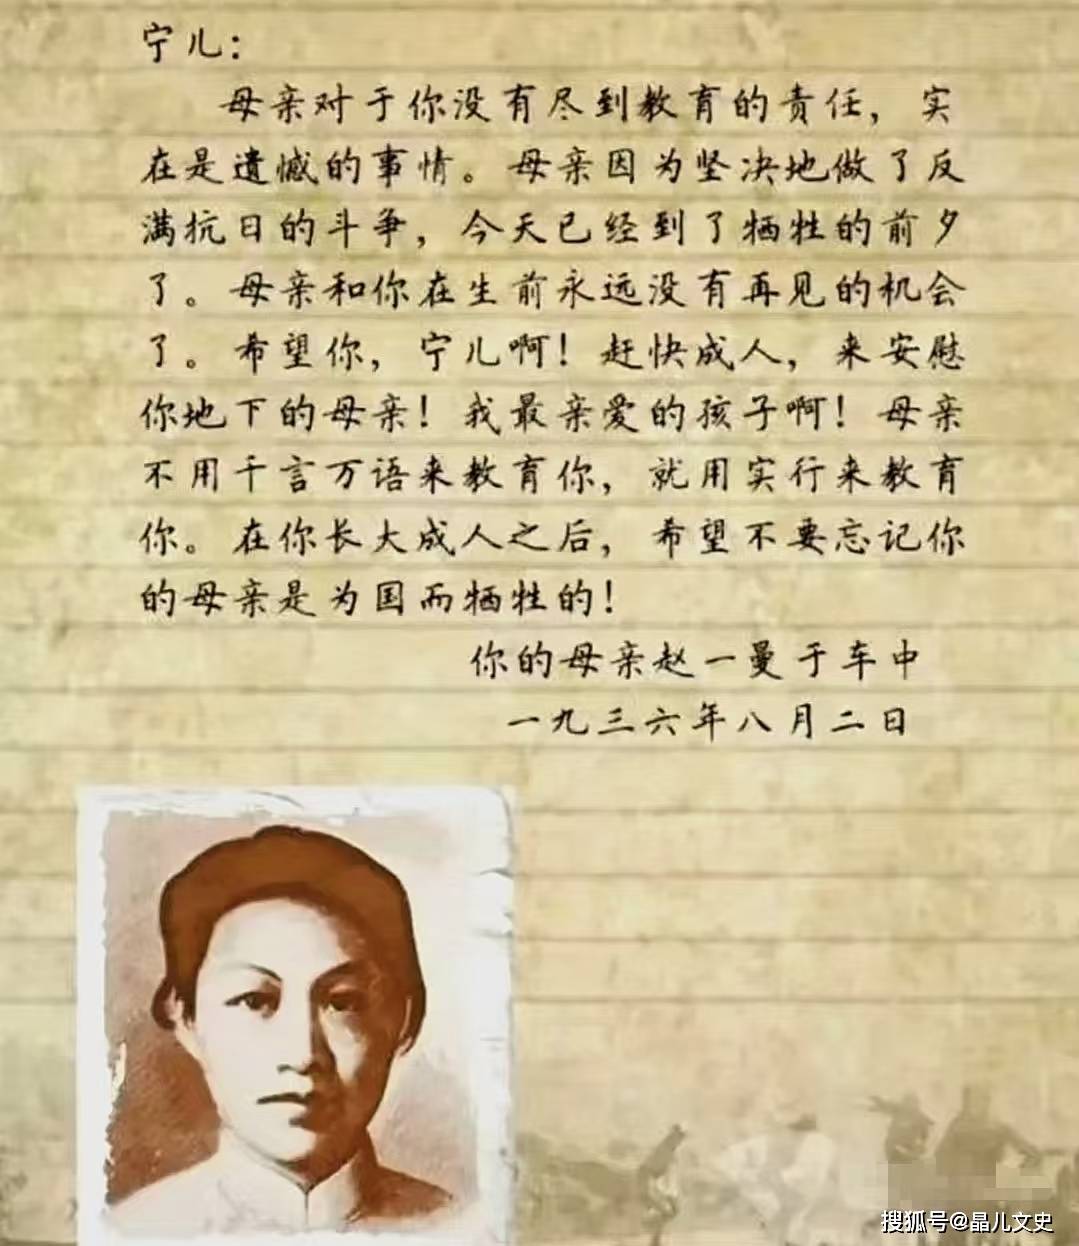 宁儿：
母亲对于你没有尽到教育的责任，实
在是遗憾的事情。母亲因为坚决地做了反
满抗日的斗争，今天已经到了牺牲的前夕
了。母亲和你在生前永远没有再见的机会
了。希望你，宁儿啊！赶快成人，来安慰
你地下的母亲！我最亲爱的孩子啊！母亲
不用千言万语来教育你，就用实行来教育
你。在你长大成人之后，希望不要忘记你
的母亲是为国而牺牲的！
你的母亲赵一曼于车中
一九三六年八月二日
搜狐号@晶儿文史